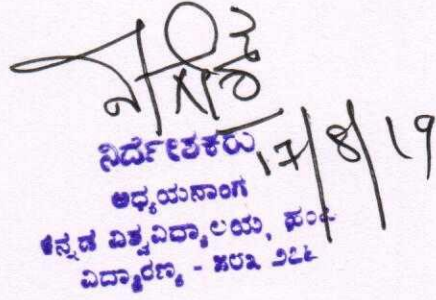 17/8/19
ನಿರ್ದೇಶಕರು
ಅಧ್ಯಯನಾಂಗ
ಕನ್ನಡ ವಿಶ್ವವಿದ್ಯಾಲಯ, ಹಂಪಿ
ವಿದ್ಯಾರಣ್ಯ - ೫೮೩ ೨೭೬